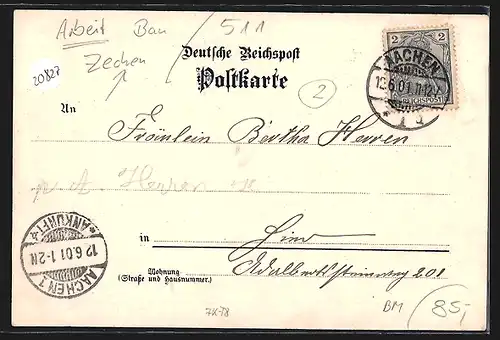 Arbeit Bau / 511
Zechen
20827
Deutsche Reichspost
Postkarte
2
2 2
REICHSPOST
AACHEN
12.6.01.11-12V
* 1 j
An
Fräulein Bertha Herren
A. Herren
in Hier
Wohnung
(Straße und Hausnummer.)
Adalbertsteinweg 201
AACHEN 1
12.6.01.1-2N
*ANKUNFT*
BM /85,-